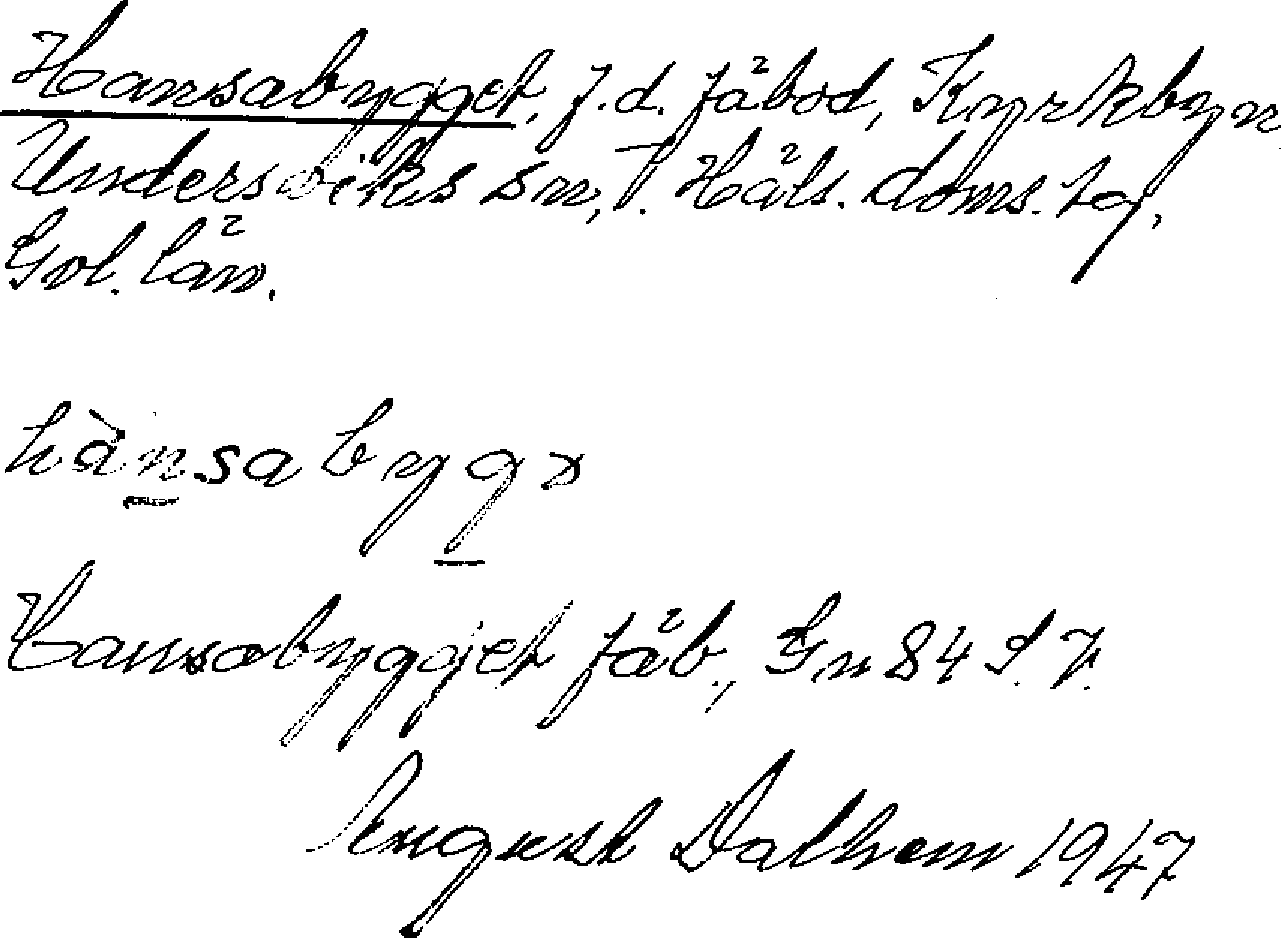 Hansabygget, f.d. fäbod, Kyrkbyn,
Undersviks sn, V. Häls. doms.ag,
Gvl. län.
hànsabygə
Hansabyggjet fäb., Gn 84 S.V.
August Dalhem 1947